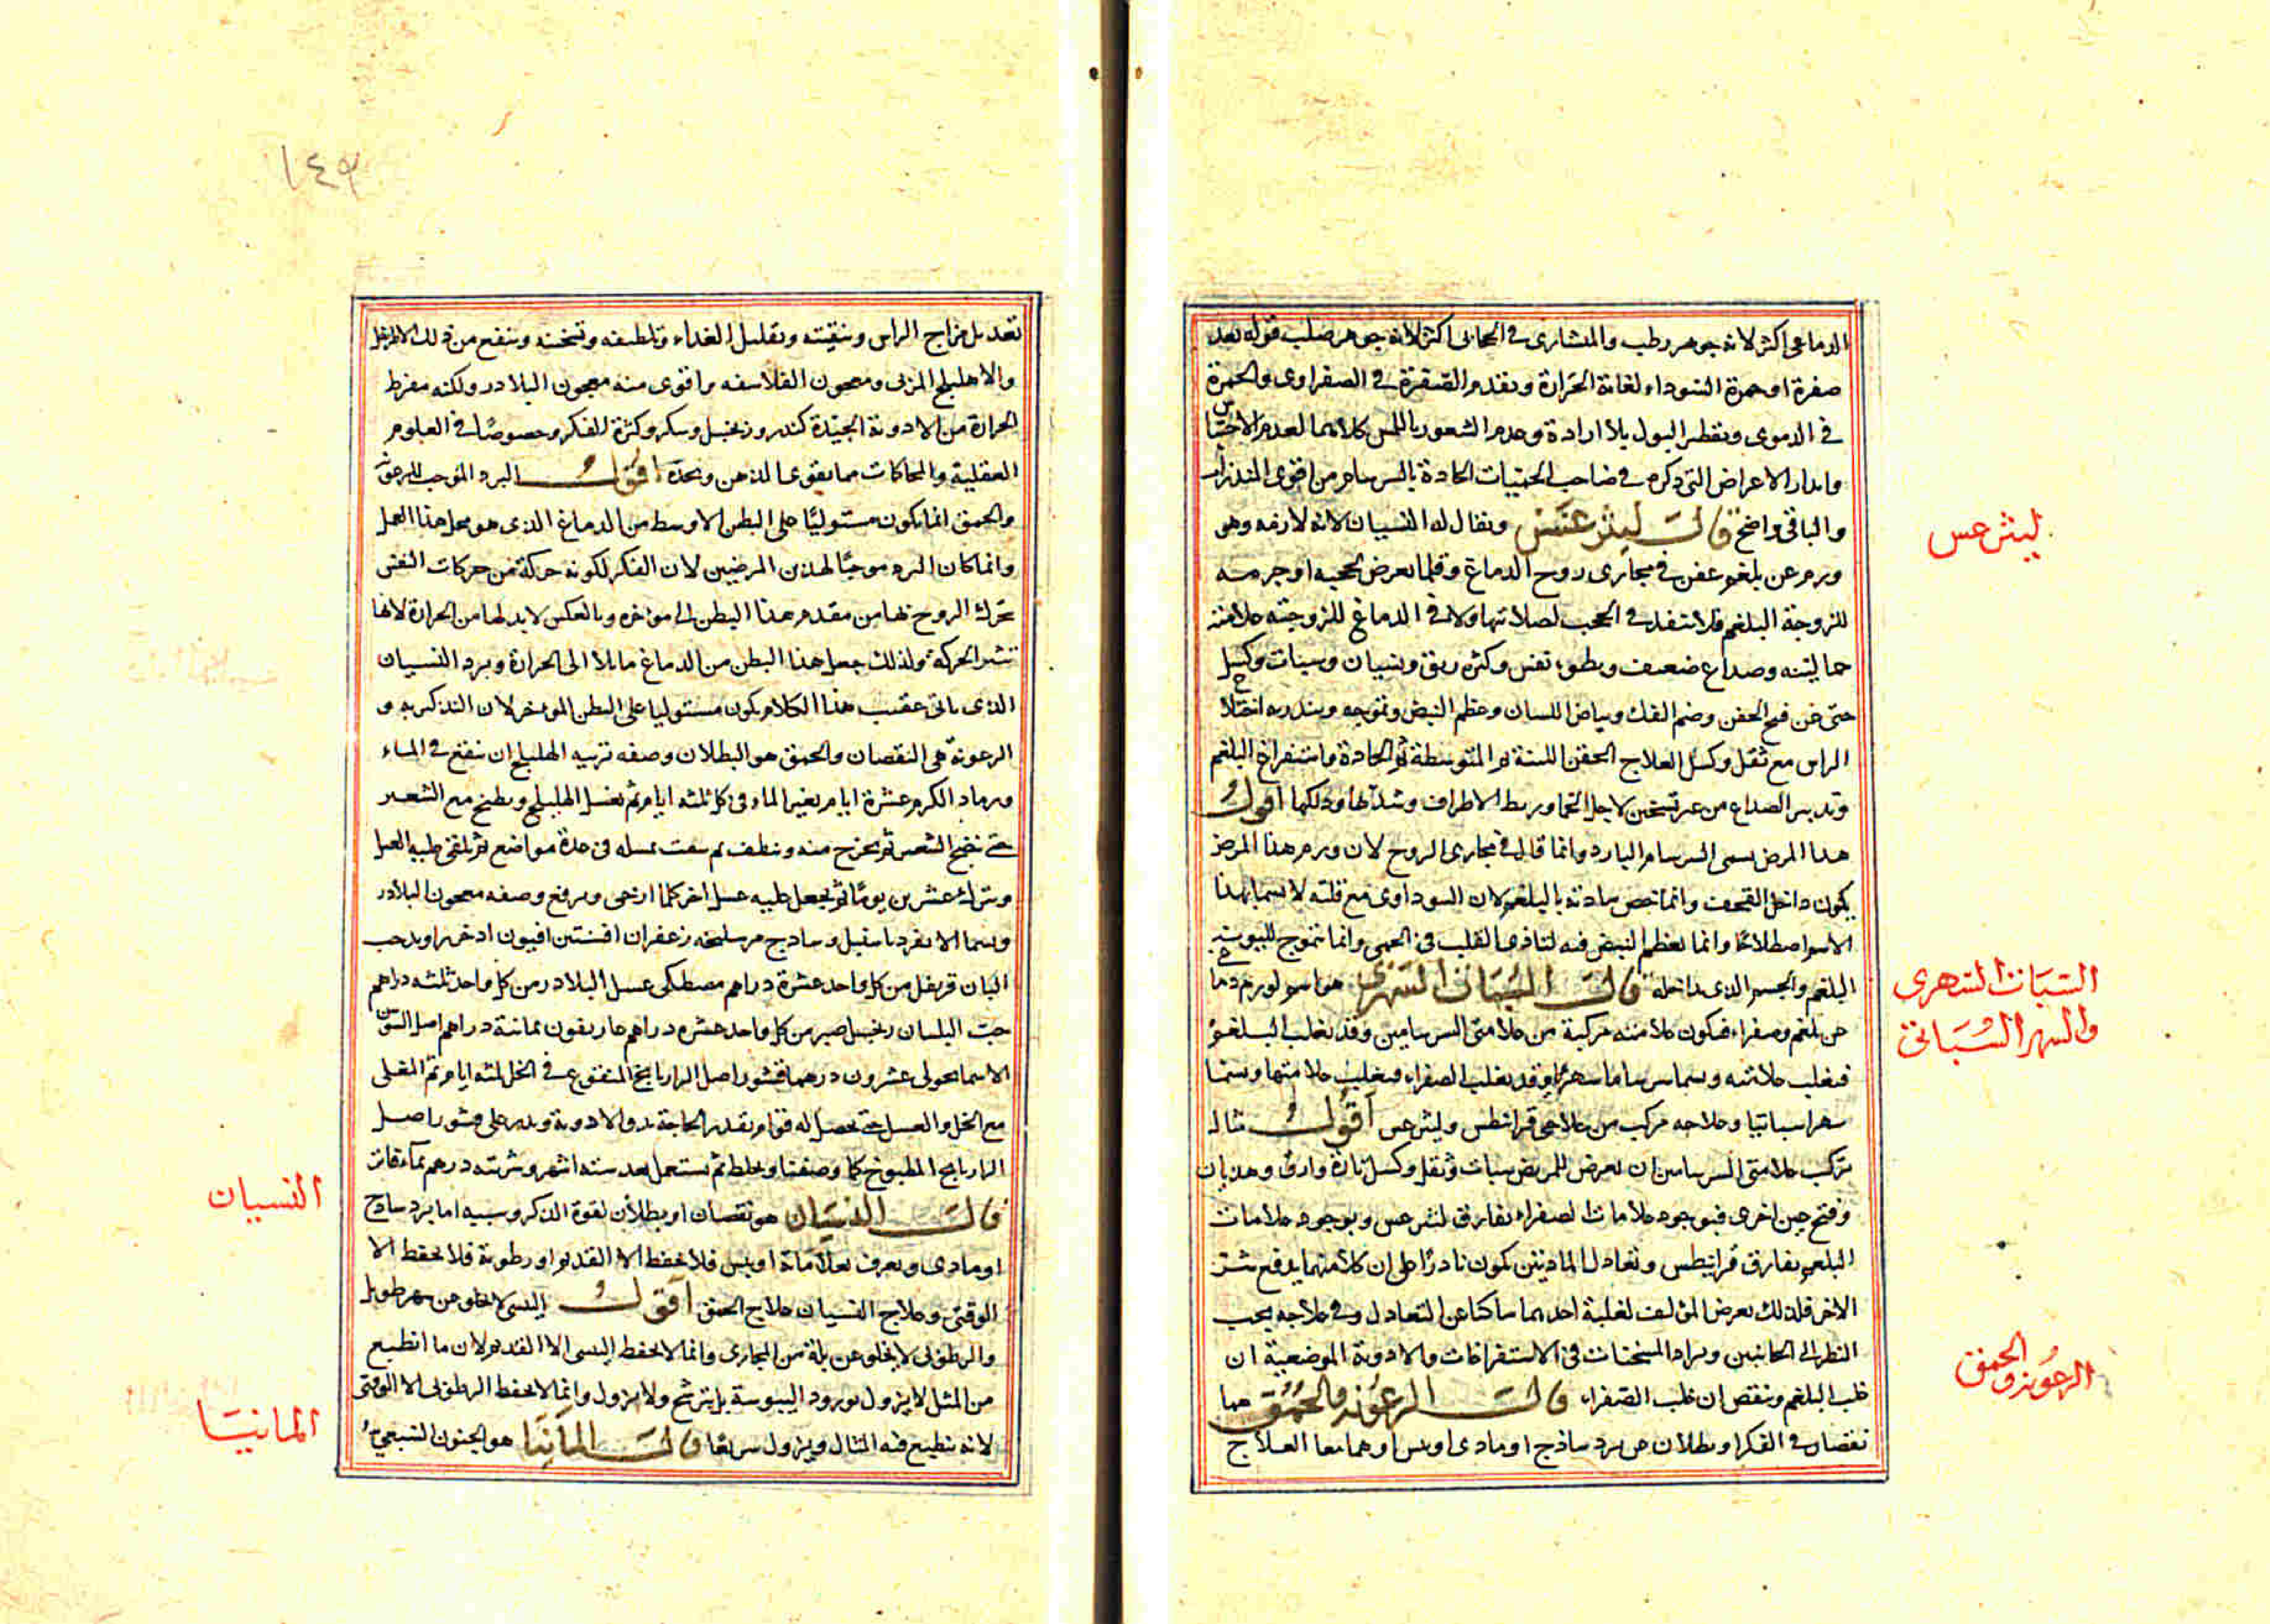 الدماغي اكثر لانه جوهر رطب والمنشارى في الحجابى اكثر لانه جوهر صلب قوله بعد
صفرة او حمرة السوداء لغاية الحرارة وتقدم الصفرة في الصفراوى والحمرة
في الدموى وتقطير البول بلا ارادة وعدم الشعور باللمس كلاهما لعدم الاحساس
وانذار الاعراض التى ذكره في صاحب الحميات الحادة بالسرسام من اقوى المنذرات
والباقى واضح قال ليثرغس ويقال له النسيان لانه لازمه وهو
ليثرغس
ورم عن بلغم عفن في مجارى روح الدماغ وقلما يعرض لحجبه او جرمه
للزوجة البلغم فلا تنفذ في الحجب لصلابتها ولا في الدماغ للزوجته علامته
حما لينه وصداع ضعيف وبطوء نفس وكثره ريق ونسيان وسبات وكسل
حتى عن فتح الجفن وضم الفك وبياض اللسان وعظم النبض وتموجه وينذر به اختلاج
الراس مع ثقل وكسل العلاج الحقن اللينة ثم المتوسطة ثم الحادة واستفراغ البلغم
وتدبير الصداع من غير تسخين لاجل الحما وربط الاطراف وشدها ودلكها اقول
هذا المرض يسمى السرسام البارد وانما قال في مجارى الروح لان ورم هذا المرض
يكون داخل القحف وانما خص مادته بالبلغم لان السوداوى مع قلته لا يسما بهذا
الاسم اصطلاحا وانما يعظم النبض فيه لتاذى القلب في الحمى وانما تموج لليونه
البلغم والجسم الذى بداخله قال السبات السهرى هو اسم لورم دماغى
السبات السهرى
والسهر السباتى
عن بلغم وصفراء فيكون علامته مركبة من علامتى السرسامين وقد يغلب البلغم
فيغلب علامته ويسما سرساما سهريا وقد يغلب الصفراء فيغلب علامتها ويسما
سهرا سباتيا وعلاجه مركب من علاجى قرانيطس وليثرغس اقول مثال
تركب علامتى السرسامين ان يعرض للمريض سبات وثقل وكسل تارة وارق وهذيان
وفتح عين اخرى فبوجود علامات الصفراء يفارق ليثرغس وبوجود علامات
البلغم يفارق قرانيطس وتعادل المادتين يكون نادرا على ان كلا منهما يدفع شر
الاخر فلذلك يعرض المؤلف لغلبة احدهما ساكتا عن التعادل وفي علاجه يجب
النظر الى الجانبين ويزاد المسخنات في الاستفراغات والادوية الموضعية ان
غلب البلغم وينقص ان غلب الصفراء قال الرعونه والحمق هما
الرعونه والحمق
نقصان في الفكر او بطلان عن برد ساذج او مادى او يبس او هما معا العلاج
١٤٩
تعديل مزاج الراس وتنقيته وتقليل الغداء وتلطيفه وتسخينه وينفع من ذلك الاطريفل
والاهليلج المربى ومعجون الفلاسفه واقوى منه معجون البلادر ولكنه مفرط
الحرارة من الادوية الجيدة كندر وزنجبيل وسكر وكثرة الفكر وخصوصا في العلوم
العقلية والمحاكات مما يقوى الذهن ويحده اقول البرد الموجب للرعونة
والحمق انما يكون مستوليا على البطن الاوسط من الدماغ الذى هو محل هذا العمل
وانما كان البرد موجبا لهذين المرضين لان الفكر لكونه حركة من حركات النفس
تحرك الروح بها من مقدم هذا البطن الى مؤخره وبالعكس لابد لها من الحرارة لانها
تثير الحركة ولذلك جعل هذا البطن من الدماغ مايلا الى الحرارة وبرد النسيان
الذى ياتى عقيب هذا الكلام يكون مستوليا على البطن المؤخر لان التذكر به و
الرعونة هى النقصان والحمق هو البطلان وصفه تربيه الهليلج ان ينقع في الماء
ورماد الكرم عشرة ايام يغير الماء في كل ثلثه ايام ثم يغسل الهليلج ويطبخ مع الشعير
حتى ينضج الشعير ثم يخرج منه وينظف ثم يلقى عليه العسل
ويترك عشرين يوما ثم يجعل عليه عسل اخر كلما ارخى ويرفع وصفه معجون البلادر
ويسما الانقرديا سنبل وساذج سليخه زعفران افسنتين افيون اذخر اوندحب
البان قرنفل من كل واحد عشرة دراهم مصطكى عسل البلادر من كل واحد ثلثه دراهم
حب البلسان زنجبيل صبر من كل واحد عشره دراهم غاريقون ثمانية دراهم اصل السوسن
الاسمانجونى عشرون درهما قشور اصل الرازيانج المنقوع في الخل ثلثه ايام ثم المغلى
مع الخل والعسل حتى يحصل له قوام بقدر الحاجة يدق الادوية ويذر على قشور اصل
الرازيانج المطبوخ كما وصفنا ويخلط ثم يستعمل بعد سته اشهر وشربته درهم بماء فاتر
قال النسيان هو نقصان او بطلان لقوة الذكر وسببه اما برد ساذج
النسيان
او مادى ويعرف بعلاماته او يبس فلا يحفظ الا القديم او رطوبة فلا يحفظ الا
الوقتى وعلاج النسيان علاج الحمق اقول اليبسى لا يخلو عن سهر طويل
والرطوبى لا يخلو عن بلة من المجارى وانما لا يحفظ اليبسى الا القديم لان ما انطبع
من المثل لا يزول بورود اليبوسة بل يترشح ولا يزول وانما لا يحفظ الرطوبى الا الوقتى
لانه ينطبع فيه المثال ويزول سريعا قال المانيا هو الجنون السبعى
المانيا